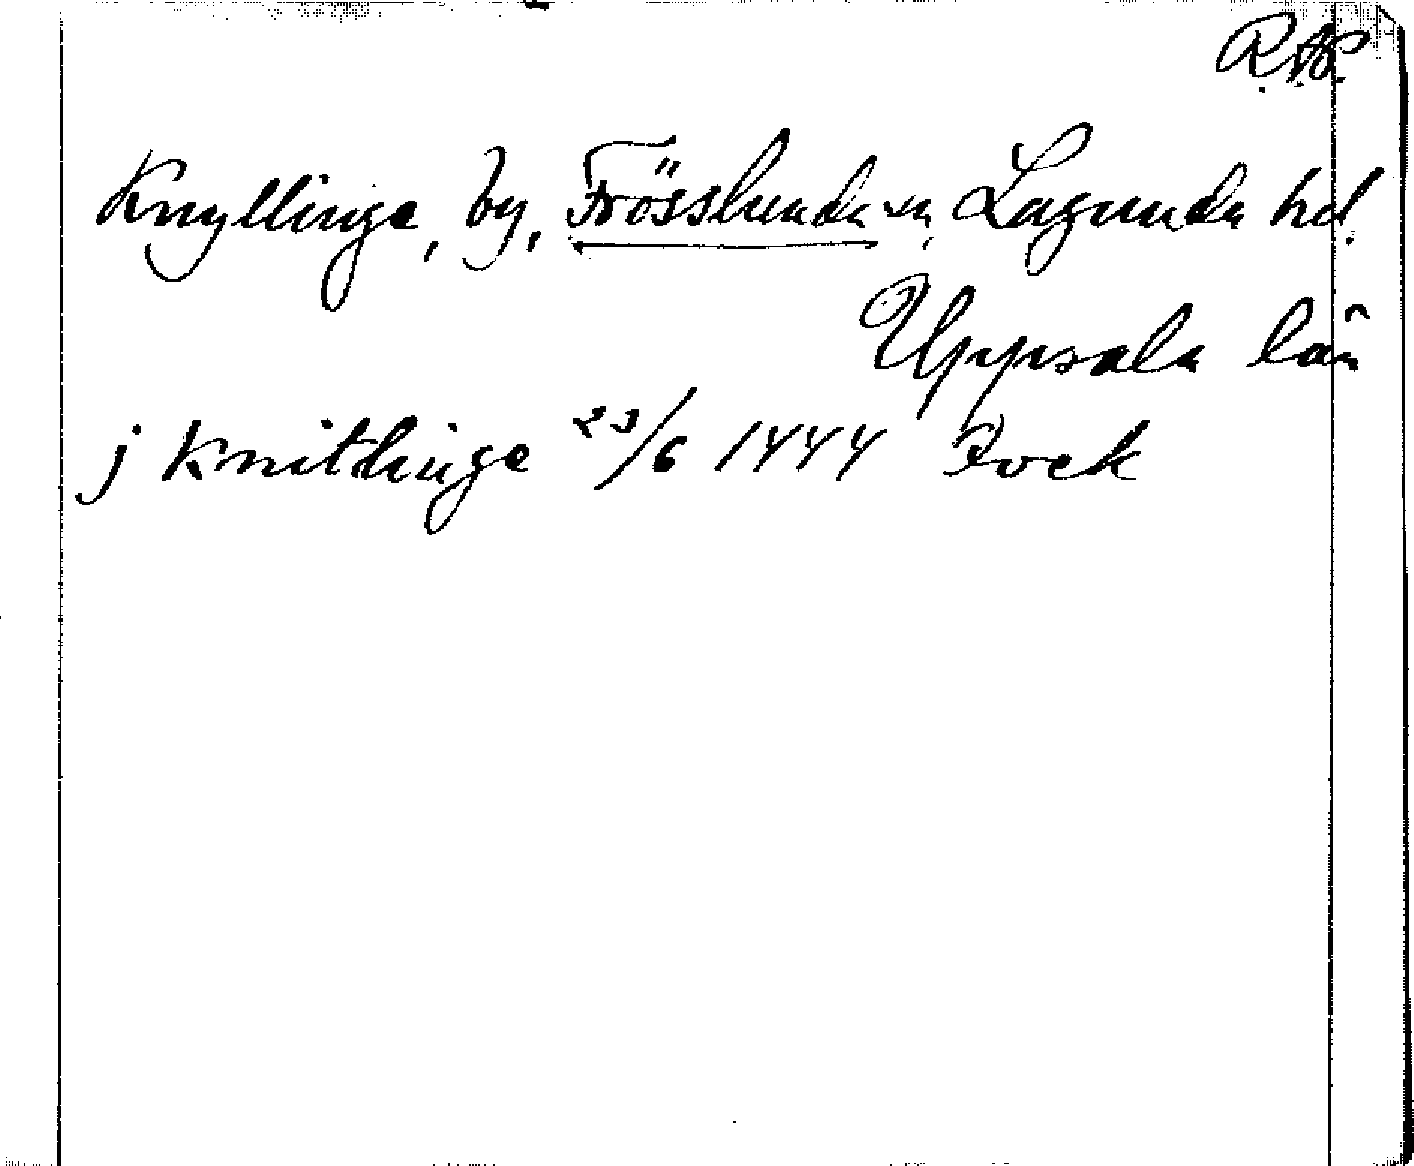 R.AP.
Knyllinge, by, Frösslunda sn, Lagunda hd.
Uppsala län
j Knitlinge 23/6 1444 Fock